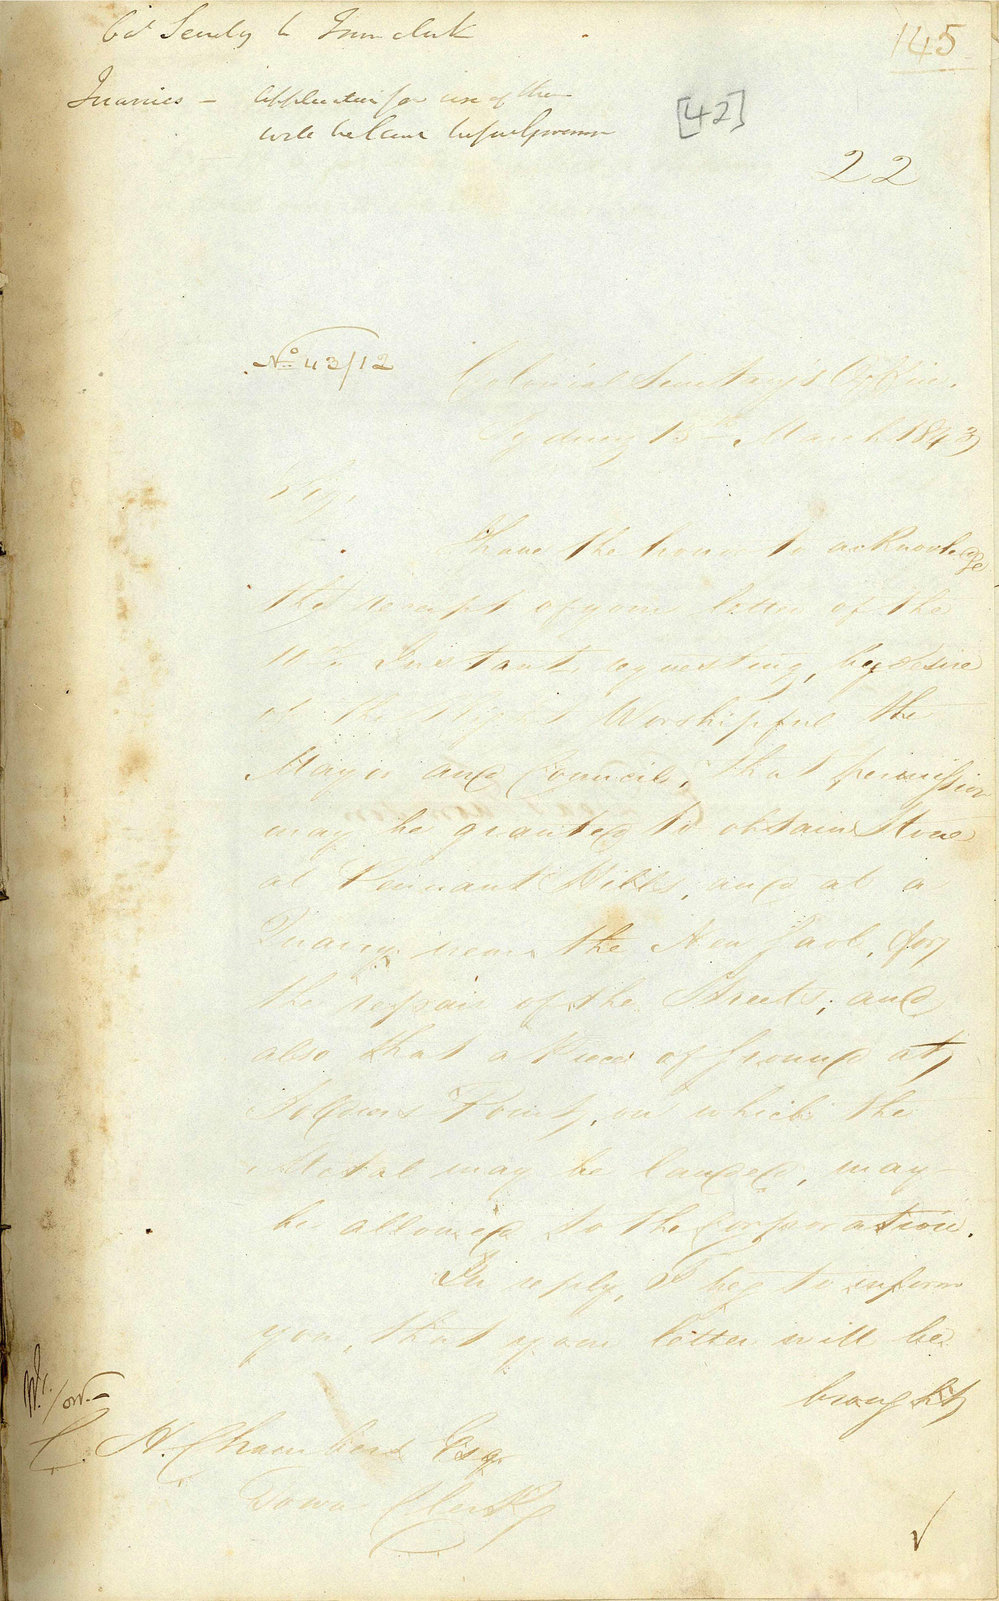 Col Secretary to Town Clerk
145
Quarries - Application for use of them
will be laid before Governor
[42]
22
No. 43/12
Colonial Secretary's Office.
Sydney 15th March 1843
Sir,
I have the honor to acknowledge
the receipt of your letter of the
11th Instant requesting, by desire
of the Right Worshipful the
Mayor and Council, that permission
may be granted to obtain Stone
at Pennant Hills, and at a
Quarry near the New Gaol, for
the repair of the Streets; and
also that a Piece of Ground at
Soldiers Point, on which the
Metal may be landed, may
be allowed to the Corporation.
In reply, I beg to inform
you, that your letter will be
brought
C. H. Chambers Esqr
Town Clerk